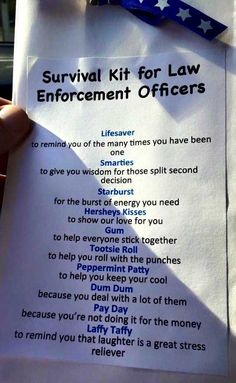 Survival Kit for Law
Enforcement Officers
Lifesaver
to remind you of the many times you have been
one
Smarties
to give you wisdom for those split second
decision
Starburst
for the burst of energy you need
Hersheys Kisses
to show our love for you
Gum
to help everyone stick together
Tootsie Roll
to help you roll with the punches
Peppermint Patty
to help you keep your cool
Dum Dum
because you deal with a lot of them
Pay Day
because you're not doing it for the money
Laffy Taffy
to remind you that laughter is a great stress
reliever